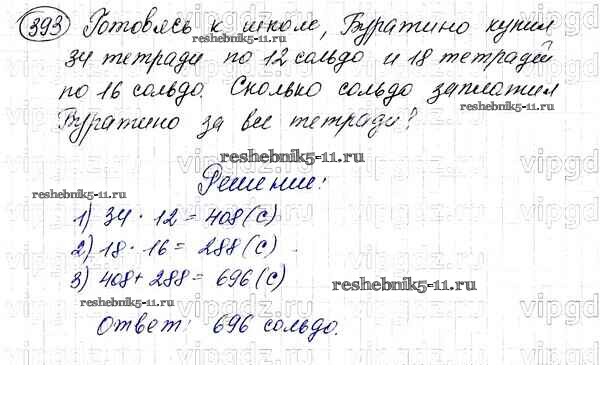 393 Готовясь к школе, Буратино купил
34 тетради по 12 сольдо и 18 тетрадей
по 16 сольдо. Сколько сольдо заплатил
Буратино за все тетради?
reshebnik5-11.ru
reshebnik5-11.ru
reshebnik5-11.ru
Решение:
reshebnik5-11.ru
1) 34 · 12 = 408 (с)
2) 18 · 16 = 288 (с)
3) 408 + 288 = 696 (с)
reshebnik5-11.ru
reshebnik5-11.ru
Ответ: 696 сольдо.
vipgdz